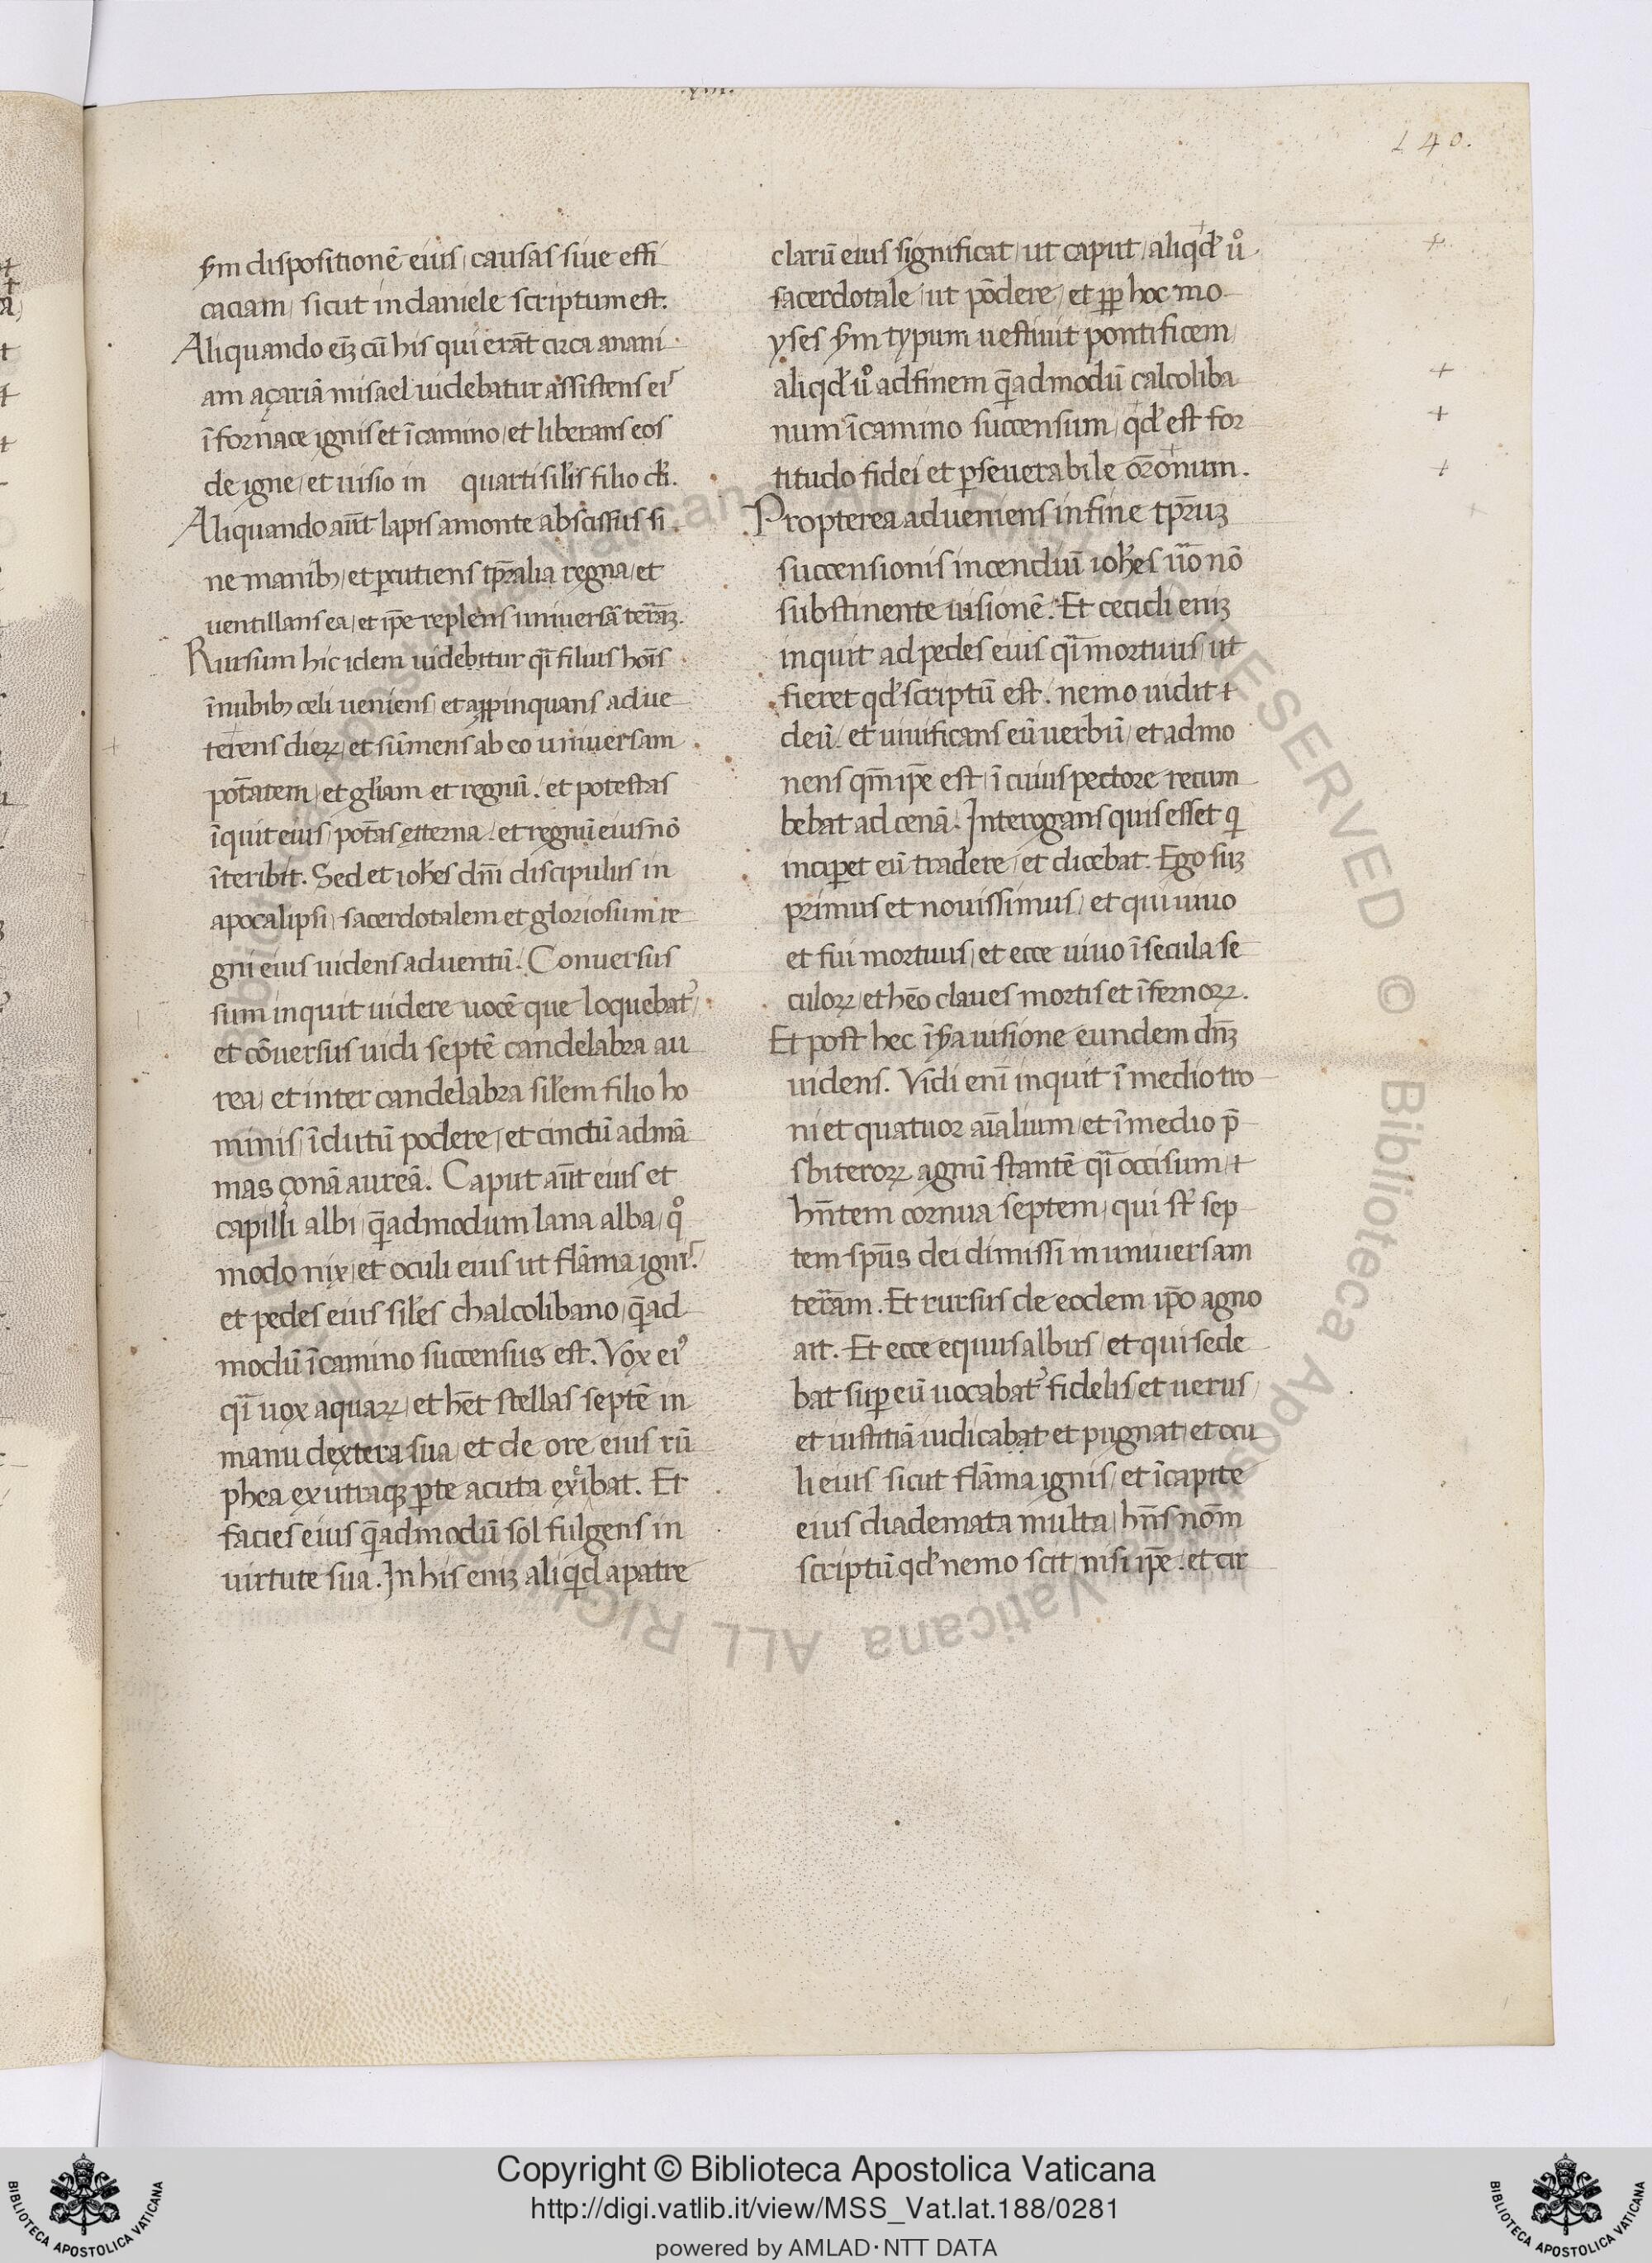 .xiii.
140.
s̄m dispositionē eius, causas siue effi
caciam, sicut in daniele scriptum est.
Aliquando eiȝ cū his qui erāt circa anani
am açariā misael uidebatur assistens eis
ī fornace ignis et ī camino, et liberans eos
de igne, et uisio in quarti silis filio dei.
Aliquando aūt lapis a monte abscissus si
ne manibȝ, et percutiens tp̄ralia regna, et
uentillans ea, et ip̄e replens uniuersā terāȝ.
Rursum hic idem uidebitur qī filius hoīs
ī nubibȝ celi ueniens, et appinquans ad ue
terens dieꝝ, et sūmens ab eo uniuersam
pot̄atem, et gl̄iam et regnū. et potestas
īquit eius, pot̄as ęterna. et regnū eius nō
īteribit. Sed et ioħes dn̄i discipulus in
apocalipsi, sacerdotalem et gloriosum re
gni eius uidens aduentū. Conuersus
sum inquit uidere uocē que loquebat᷑,
et cōuersus uidi septē candelabra au
rea, et inter candelabra sil̄em filio ho
minis, īdutū podere, et cinctū ad mā
mas çonā aureā. Caput aūt eius et
capilli albi, q̄admodum lana alba, qͦ
modo nix, et oculi eius ut flāma ignis.
et pedes eius sil̄es chalcolibano, q̄ad
modū ī camino succensus est. Vox eiꝰ
qī uox aquaꝝ, et hēt stellas septē in
manu dextera sua, et de ore eius rū
phea ex utraqȝ ꝑte acuta exibat. Et
facies eius q̄admodū sol fulgens in
uirtute sua. In his eniȝ aliqid a patre
clarū eius significat, ut caput, aliqd̄ uͦ
sacerdotale, ut pōdere, et pp̄ hoc mo
yses s̄m typum uestiuit pontificem,
aliqd̄ uͦ ad finem q̄admodū calcoliba
num ī camino succensum, qd̄ est for
titudo fidei et ꝑseuerabile or̄onum.
Propterea adueniens in fine tp̄ruȝ
succensionis incendiū ioħes ūo nō
substinente uisionē. Et cecidi eniȝ
inquit ad pedes eius qī mortuus, ut
fieret qd̄ scriptū est. nemo uidit ⁊
deū. et uiuificans eū uerbū, et admo
nens qm̄ ip̄e est, ī cuius pectore recum
bebat ad cenā. Interogans quis esset q
incipet eū tradere, et dicebat. Ego suȝ
primus et nouissimus, et qui uiuo
et fui mortuus, et ecce uiuo ī secula se
culoꝝ, et hēo claues mortis et īfernoꝝ.
Et post hec ī s̄a uisione eundem dn̄ȝ
uidens. Vidi enī inquit ī medio tro
ni et quatuor aīalium, et ī medio p̄
sbiteroꝝ agnū stantē qī occisum, ⁊
hn̄tem cornua septem, qui st̄ sep
tem spūs dei dimissi in uniuersam
terāam. Et rursus de eodem ip̄o agno
ait. Et ecce equus albus, et qui sede
bat suꝑ eū uocabat᷑ fidelis, et uerus,
et iustitiā iudicabat et pugnat, et ocu
li eius sicut flāma ignis, et ī capite
eius diademata multa, hn̄s nōm
scriptū qd̄ nemo scit, nisi ip̄e. et cir
Copyright © Biblioteca Apostolica Vaticana
http://digi.vatlib.it/view/MSS_Vat.lat.188/0281
powered by AMLAD·NTT DATA
BIBLIOTECA APOSTOLICA VATICANA
BIBLIOTECA APOSTOLICA VATICANA
© Biblioteca Apostolica Vaticana ALL RIGHTS RESERVED
© Biblioteca Apostolica Vaticana ALL RIGHTS RESERVED